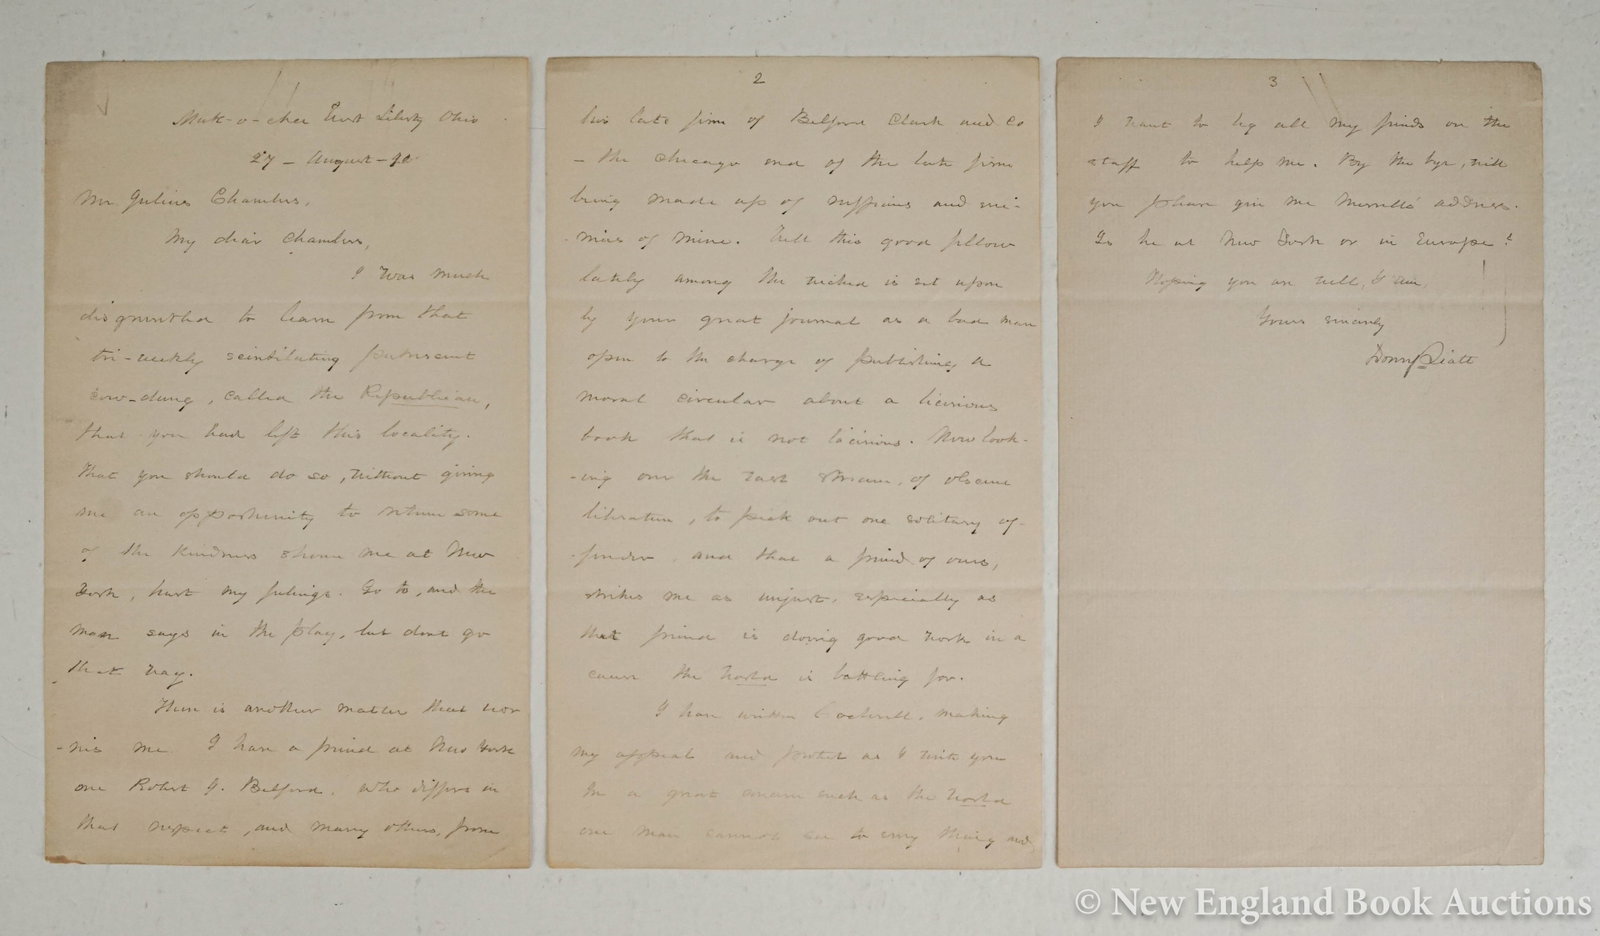 Mak-o-chee West Liberty Ohio
27 - August - 90
Mr Julius Chambers,
My dear Chambers,
I was much
disgruntled to learn from that
tri-weekly scintilating putrescent
cow-dung, called the Republican,
that you had left this locality.
That you should do so, without giving
me an opportunity to return some
of the kindness shown me at New
York, hurt my feelings. Go to, and the
man says in the play, but dont go
that way.
There is another matter that wor-
-ries me. I have a friend at New York
one Robert J. Belford. who differs in
that respect, and many others, from
2
his late firm of Belford Clark and Co
- the Chicago end of the late firm
being made up of ruffians and ene-
-mies of mine. Well this good fellow
lately among the wicked is set upon
by your great journal as a bad man
open to the charge of publishing a
moral circular about a licivious
book that is not licivious. Now look-
-ing over the vast stream, of obscene
literature, to pick out one solitary of-
-fender, and that a friend of ours,
strikes me as unjust, especially as
that friend is doing good work in a
cause the World is battling for.
I have written Cockerill, making
my appeal and protest as I write you
In a great concern such as the World
one man cannot see to every thing and
3
I want to beg all my friends on the
staff to help me. By the bye, will
you please give me Merrill's address.
Is he at New York or in Europe?
Hoping you are well, I am,
Yours sincerely
Donn Piatt
© New England Book Auctions